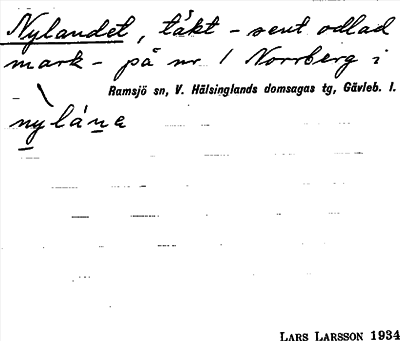 Nylandet, täkt - sent odlad
mark - på nr 1 Norrberg i
Ramsjö sn, V. Hälsinglands domsagas tg, Gävleb. l.
nylána
LARS LARSSON 1934